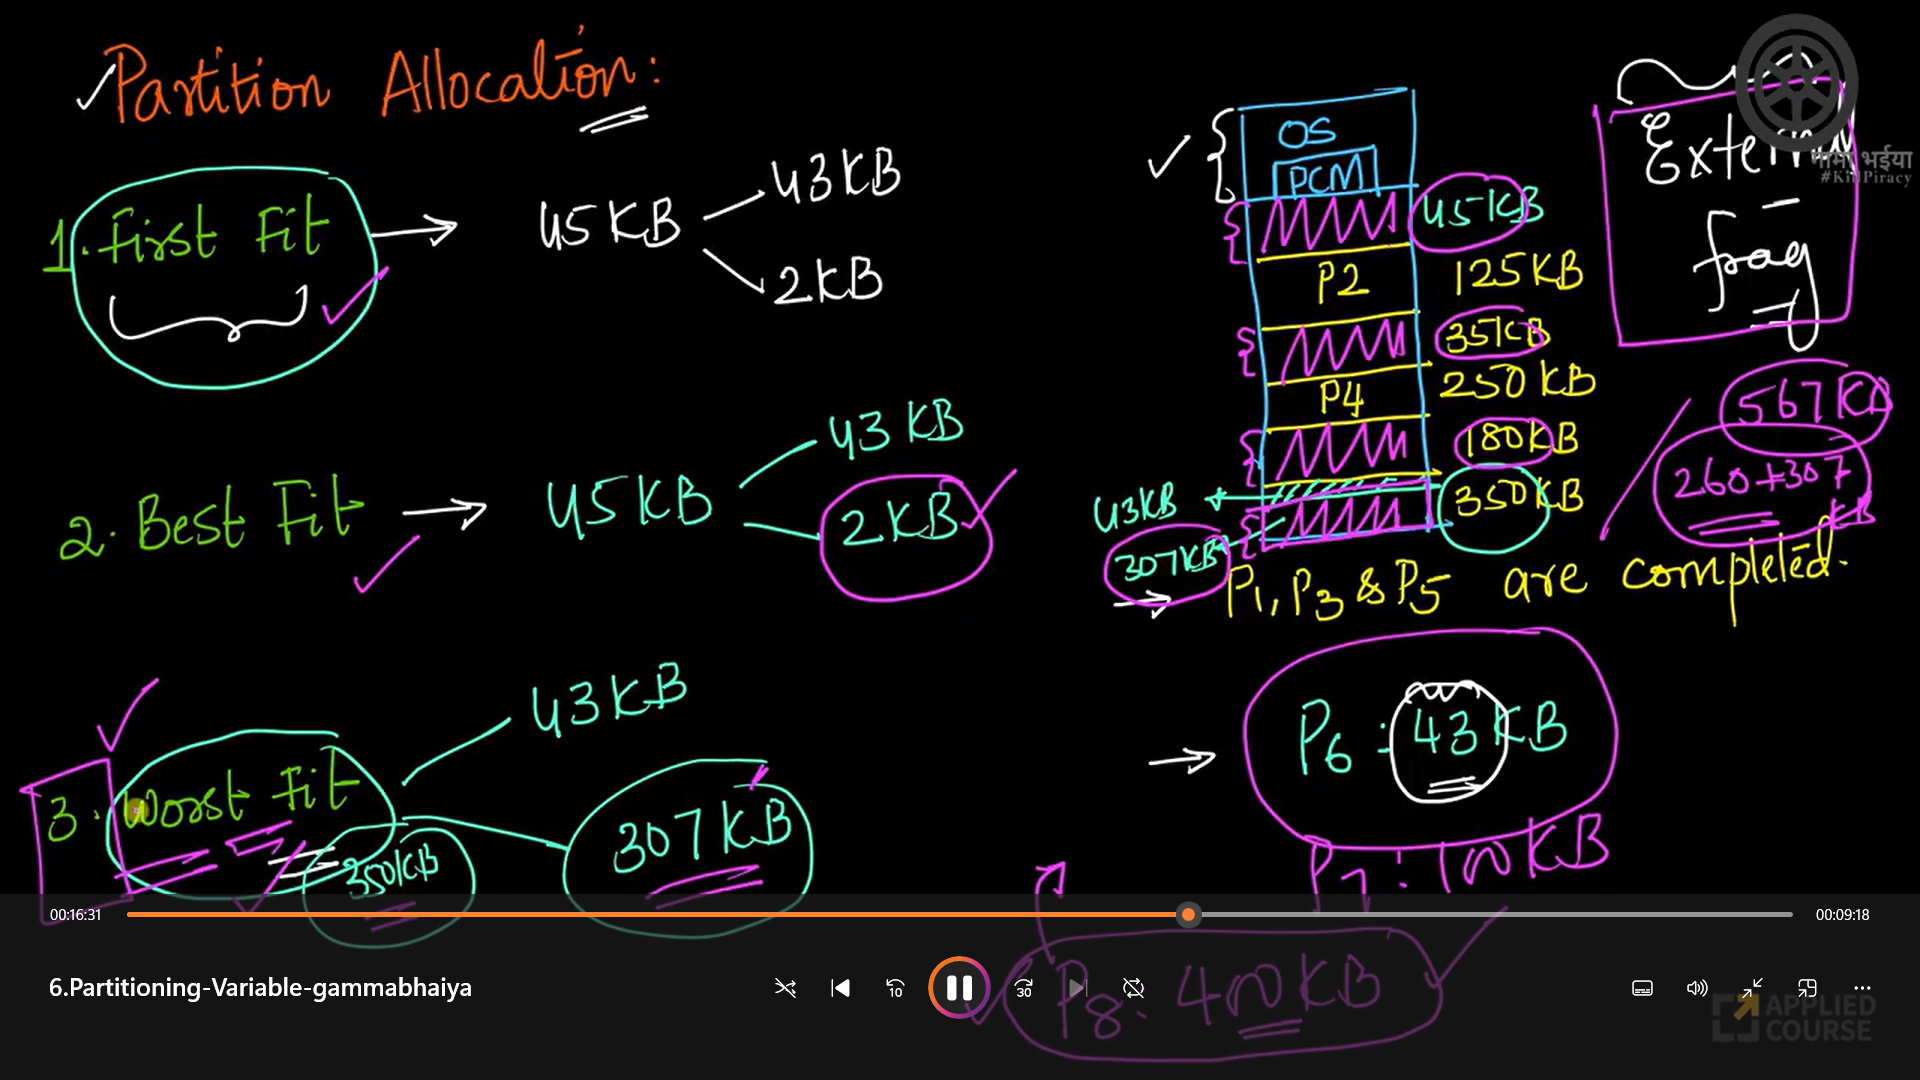 Partition Allocation:
1. First Fit → 45KB
43KB
2KB
2. Best Fit → 45KB
43KB
2KB
3. Worst Fit
350KB
43KB
307KB
OS
PCM
45KB
P2 125KB
35KB
P4 250KB
180KB
350KB
43KB
307KB
External
frag
567KB
260+307
KB
P1, P3 & P5 are completed.
→ P6 : 43KB
P7 : 100KB
P8 : 400KB
गामा भईया
#KillPiracy
00:16:31
00:09:18
6.Partitioning-Variable-gammabhaiya
10
30
APPLIED
COURSE